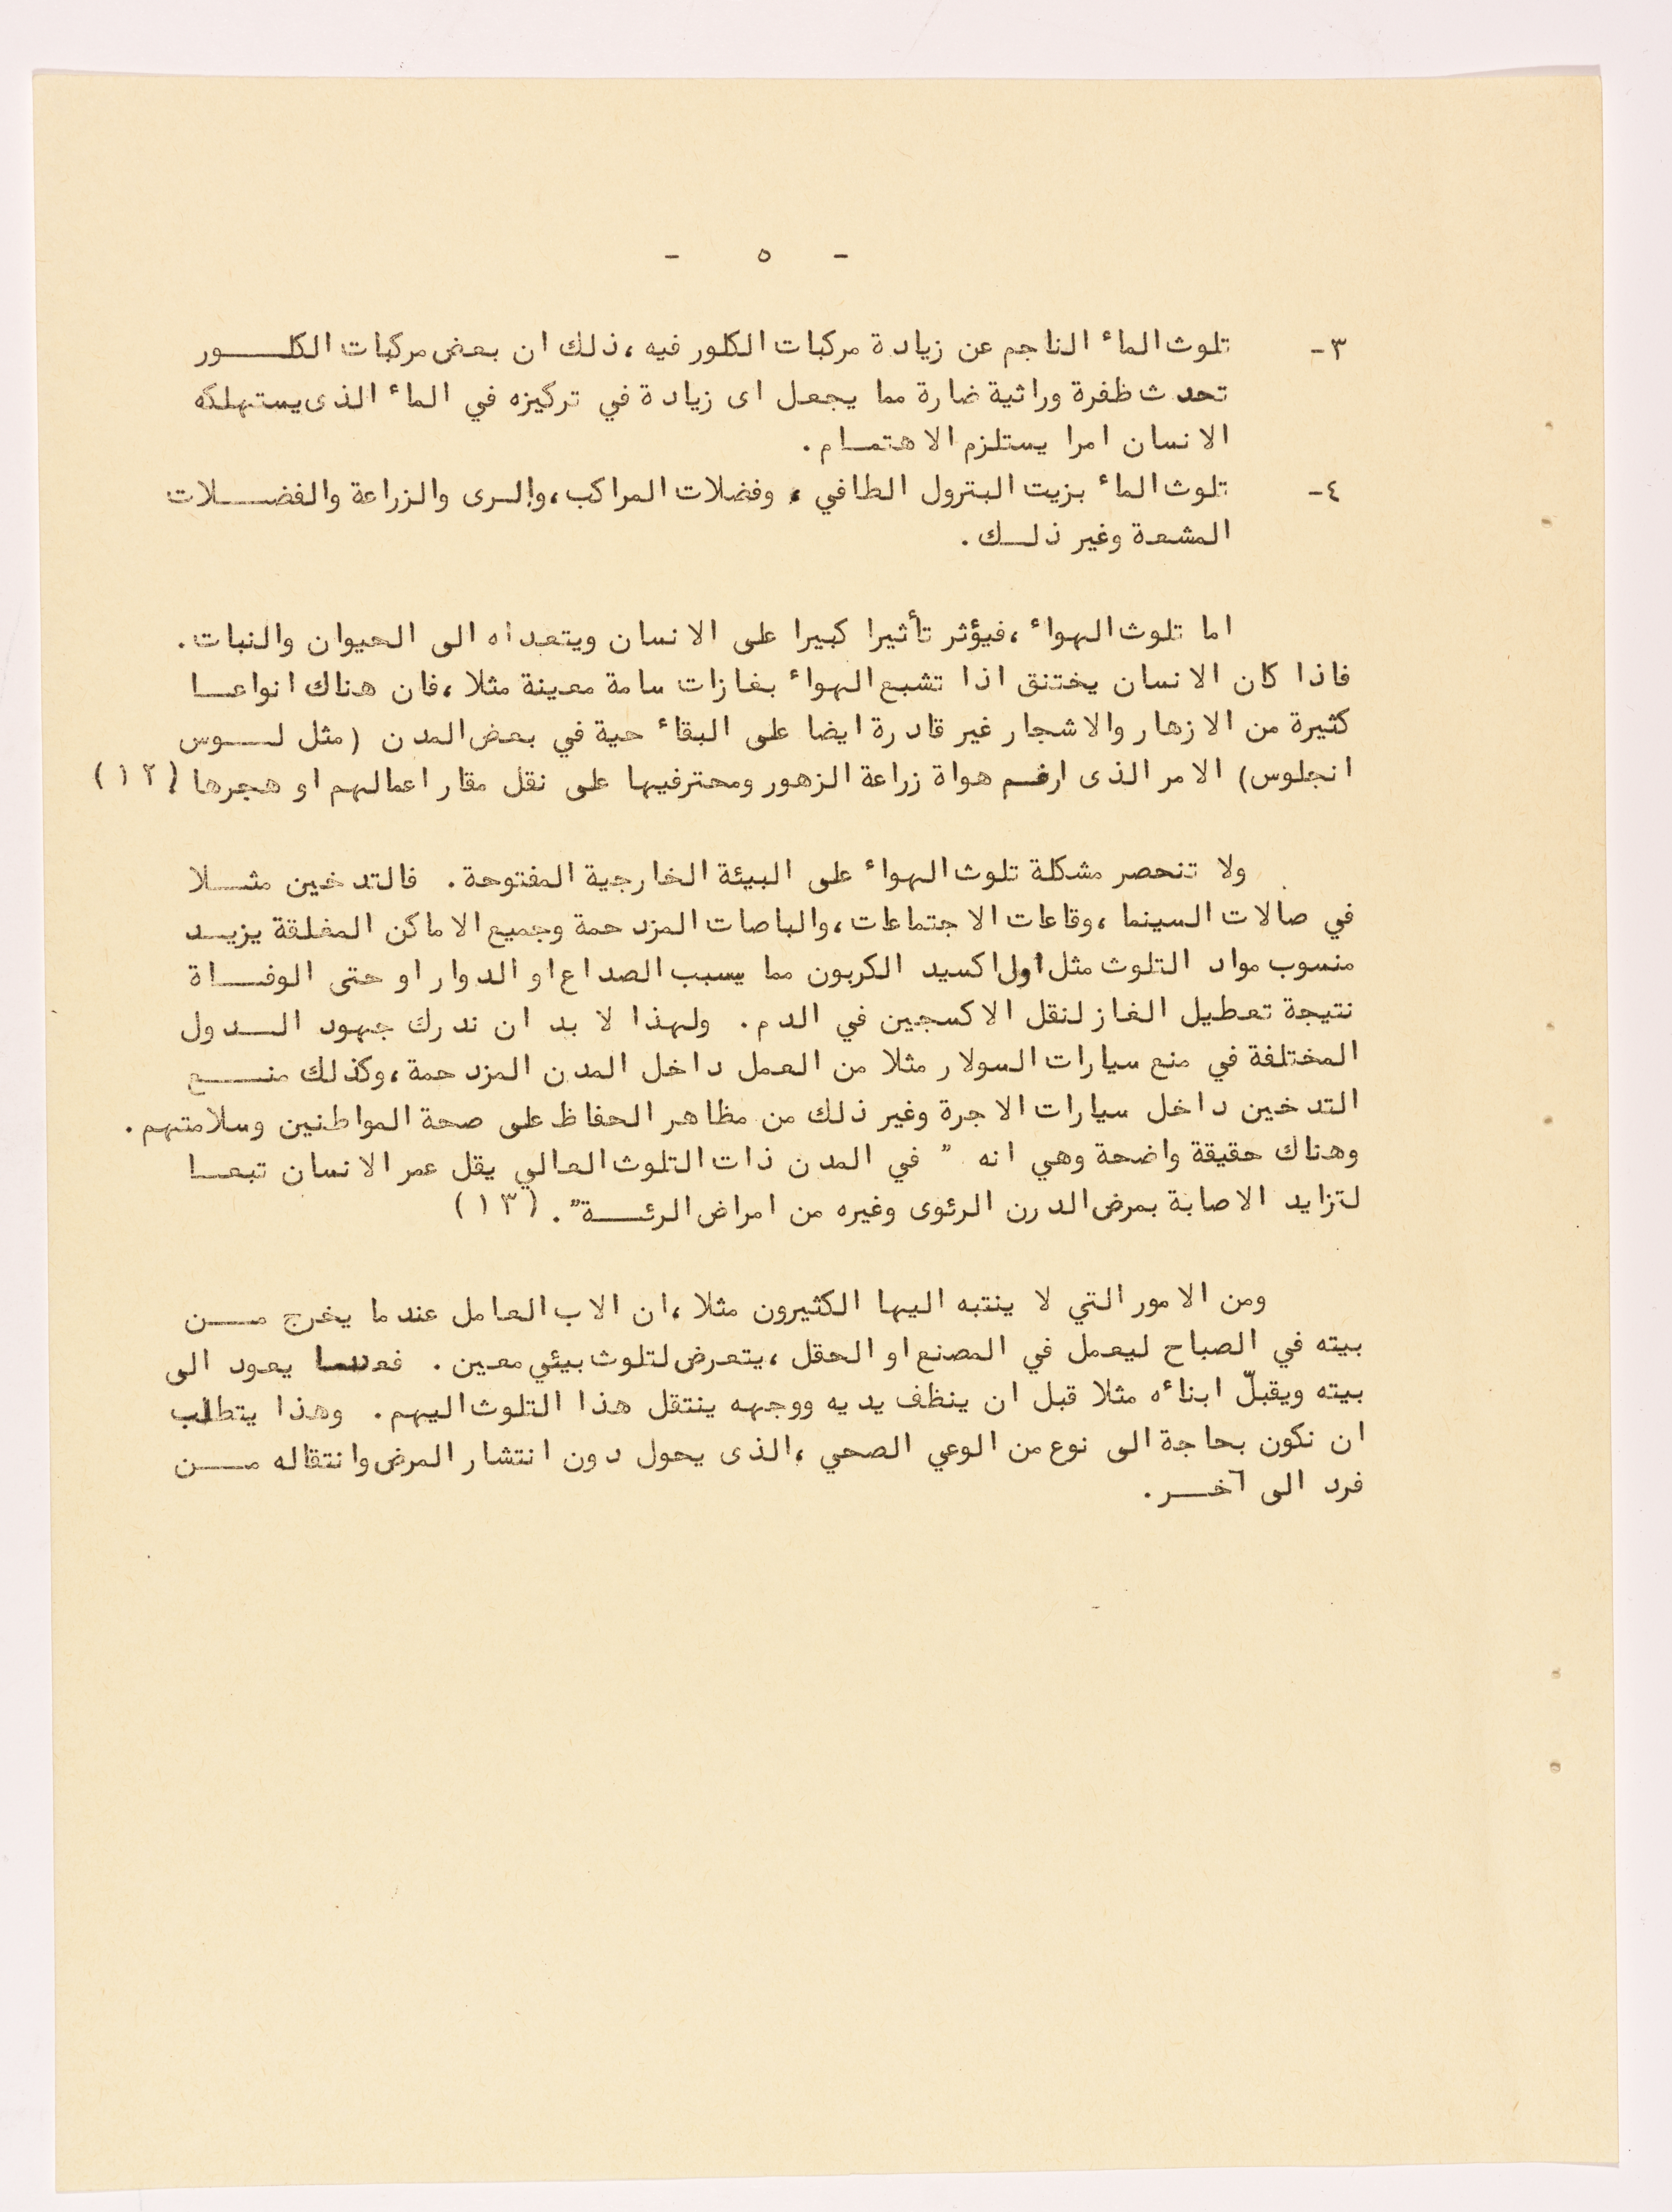 - ٥ -
٣- تلوث الماء الناجم عن زيادة مركبات الكلور فيه، ذلك ان بعض مركبات الكلـــور
تحدث ظفرة وراثية ضارة مما يجعل اى زيادة في تركيزه في الماء الذى يستهلكه
الانسان امرا يستلزم الاهتمــام.
٤- تلوث الماء بزيت البترول الطافي، وفضلات المراكب، والرى والزراعة والفضــلات
المشعة وغير ذلــك.
اما تلوث الهواء، فيؤثر تأثيرا كبيرا على الانسان ويتعداه الى الحيوان والنبات.
فاذا كان الانسان يختنق اذا تشبع الهواء بغازات سامة معينة مثلا، فان هناك انواعــا
كثيرة من الازهار والاشجار غير قادرة ايضا على البقاء حية في بعض المدن (مثل لــوس
انجلوس) الامر الذى ارغم هواة زراعة الزهور ومحترفيها على نقل مقار اعمالهم او هجرها (١٢)
ولا تنحصر مشكلة تلوث الهواء على البيئة الخارجية المفتوحة. فالتدخين مثــلا
في صالات السينما، وقاعات الاجتماعات، والباصات المزدحمة وجميع الاماكن المغلقة يزيــد
منسوب مواد التلوث مثل اول اكسيد الكربون مما يسبب الصداع او الدوار او حتى الوفــاة
نتيجة تعطيل الغاز لنقل الاكسجين في الدم. ولهذا لا بد ان ندرك جهود الــدول
المختلفة في منع سيارات السولار مثلا من العمل داخل المدن المزدحمة، وكذلك منــع
التدخين داخل سيارات الاجرة وغير ذلك من مظاهر الحفاظ على صحة المواطنين وسلامتهم.
وهناك حقيقة واضحة وهي انه " في المدن ذات التلوث العالي يقل عمر الانسان تبعــا
لتزايد الاصابة بمرض الدرن الرئوى وغيره من امراض الرئــة". (١٣)
ومن الامور التي لا ينتبه اليها الكثيرون مثلا، ان الاب العامل عندما يخرج مــن
بيته في الصباح ليعمل في المصنع او الحقل، يتعرض لتلوث بيئي معين. يعود الى
بيته ويقبلّ ابناءه مثلا قبل ان ينظف يديه ووجهه ينتقل هذا التلوث اليهم. وهذا يتطلب
ان نكون بحاجة الى نوع من الوعي الصحي، الذى يحول دون انتشار المرض وانتقاله مــن
فرد الى آخــر.